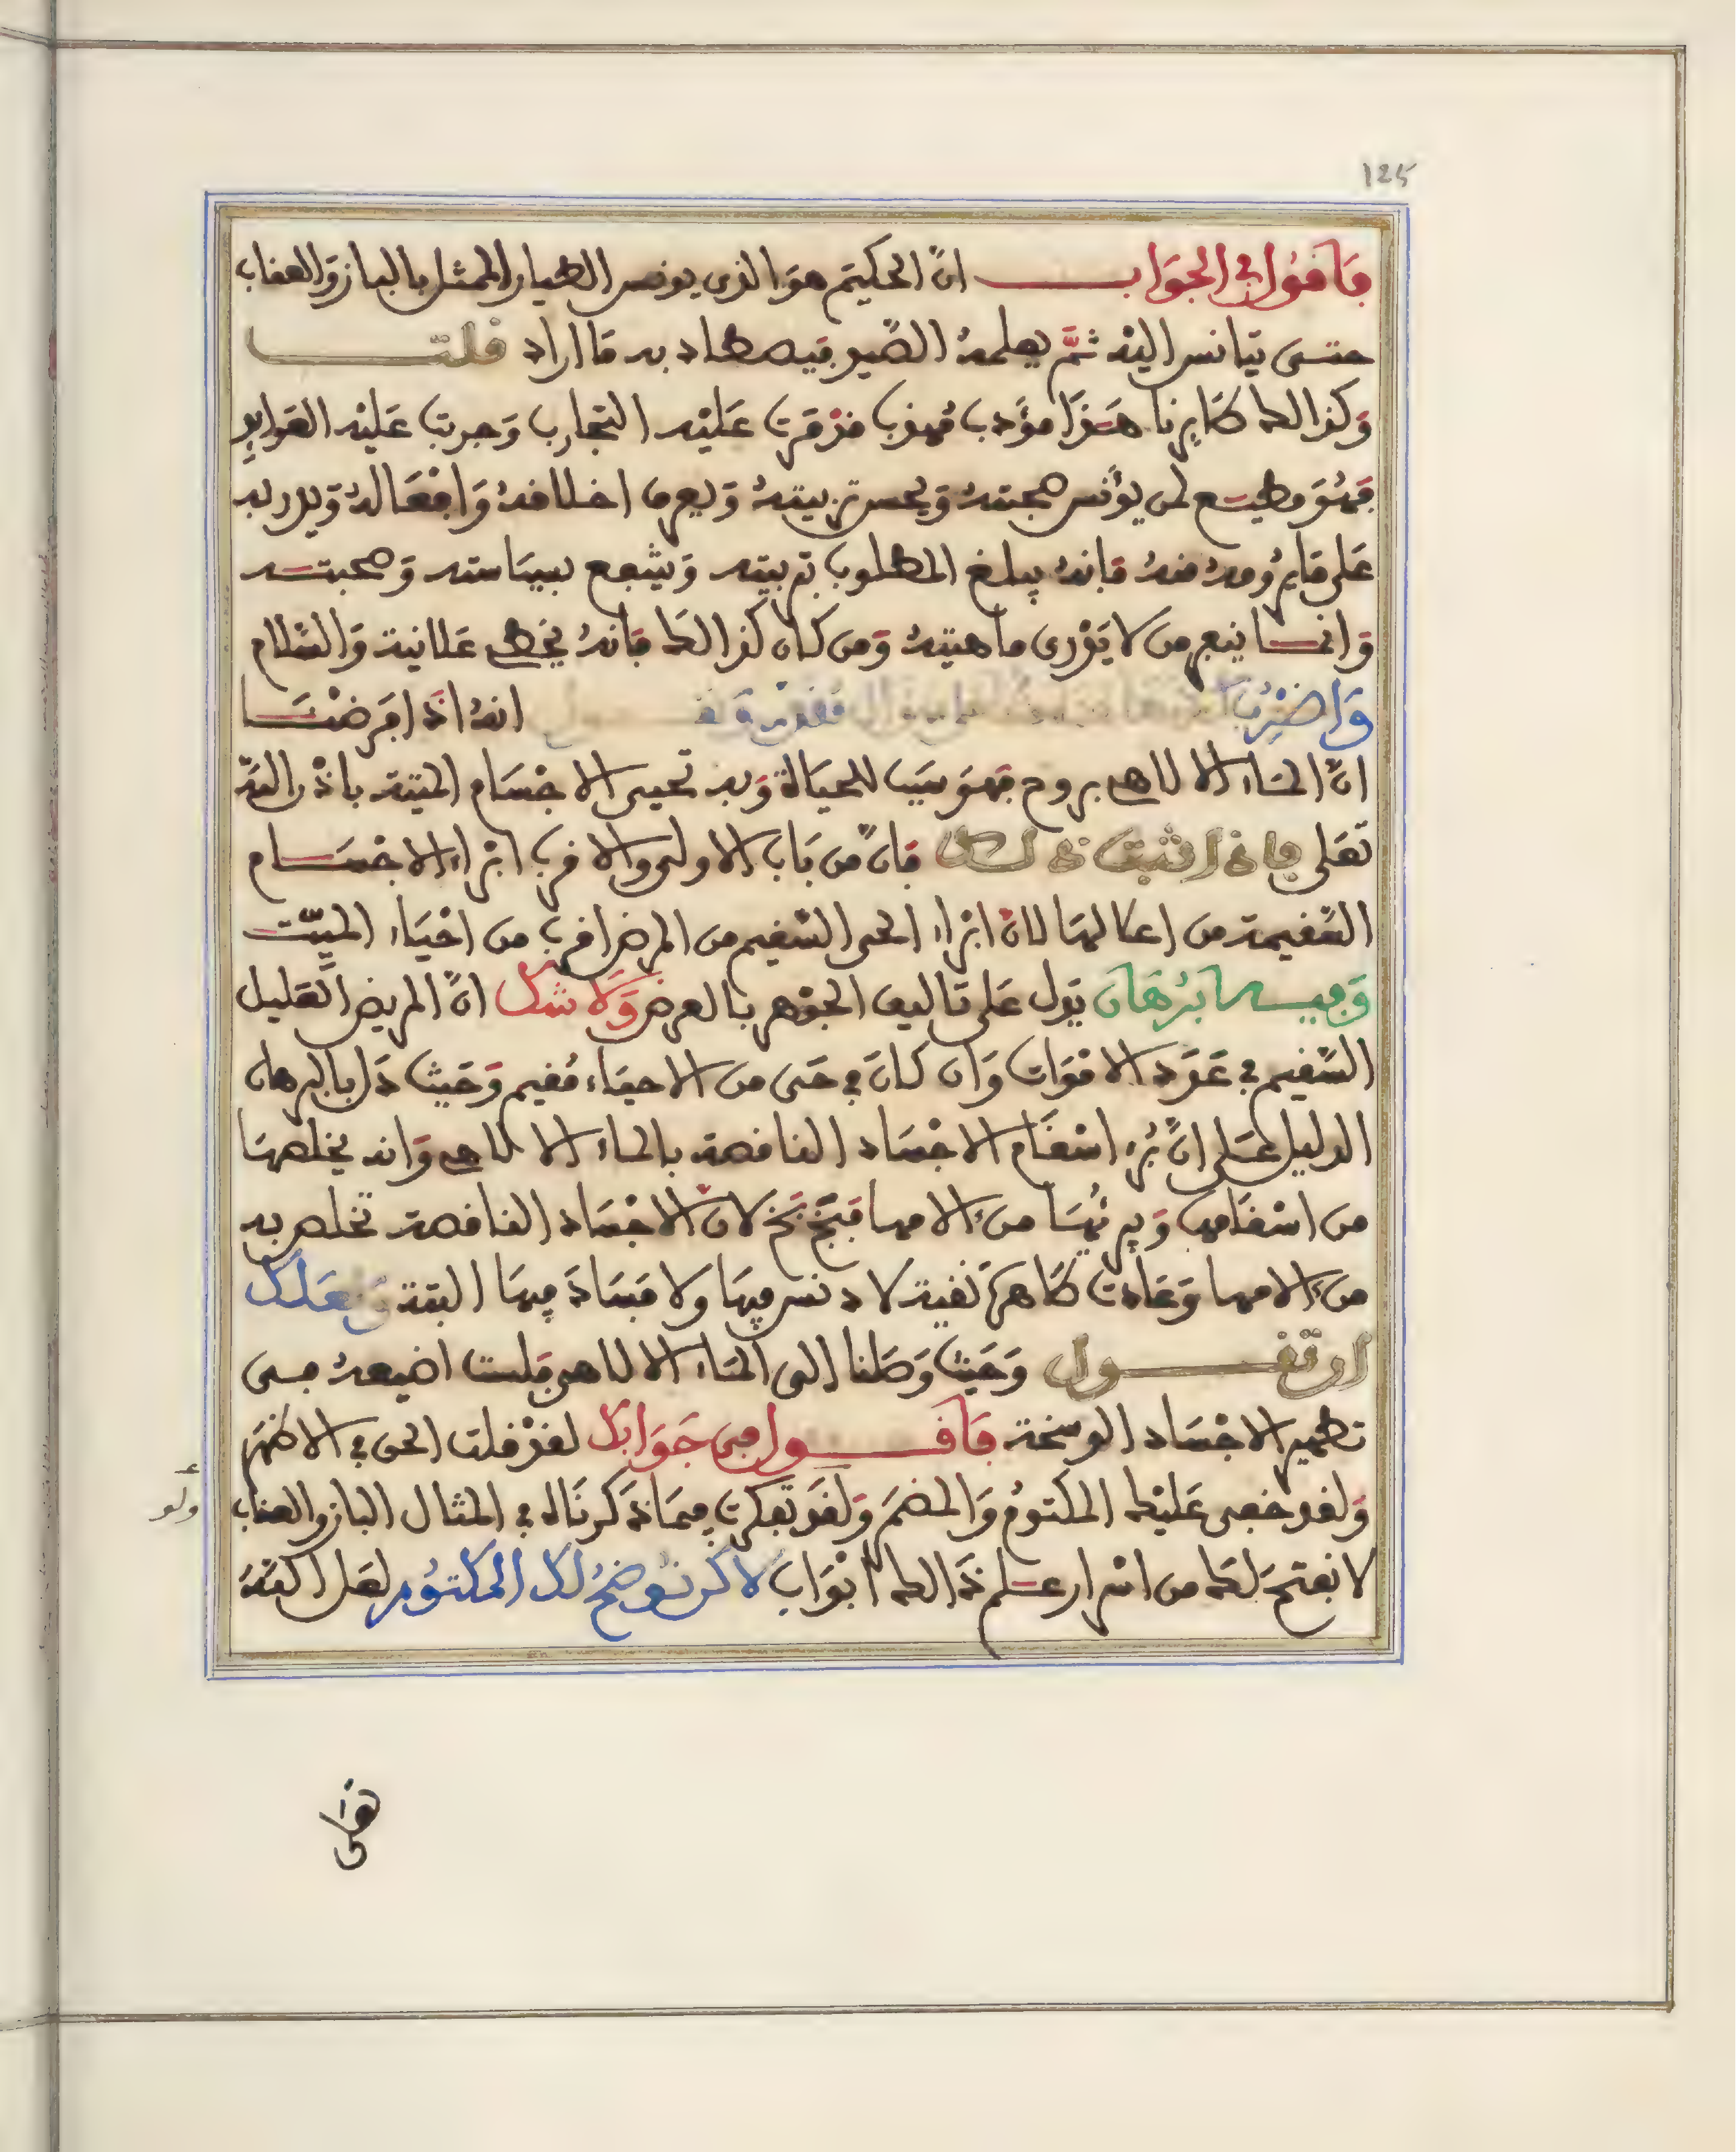 125
فأقول في الجواب ان الحكيم هو الذي يونس الطيار الممثل بالباز والعقاب
حتى يتانس اليه ثم يعلمه الصيد فيصطاد به ما اراد قلت
وكذالك طايرنا هذا مؤدب مهذب قد مرت عليه التجارب وجرت عليه
فهو مطيع لمن يؤنس صحبته ويحسن تربيته ويعرف اخلاقه وافعاله ويدربه
على ما يرومه منه فانه يبلغ المطلوب بتربيته وينتفع بسياسته وصحبته
وانما ينفر من لا يدري ماهيته ومن كان كذالك فانه يخطي علانية والسلام
واضرب انه اذا فرضنا
ان الماء الالاهي بروح فهو سبب للحياة وبه تحيى الاجسام الميتة باذن الله
تعلى فاذا ثبت ذلك فان من باب الاولى والاقرب ابراء الاجسام
السقيمة من اعلالها لان ابراء الحي السقيم من المرض اقرب من احياء الميت
وفيه برهان يدل على تاليف الجوهر بالعرض ولا شك ان المريض العليل
السقيم في عدد الاموات وان كان في حي من الاحياء مقيم وحيث دل بالبرهان
الدليل على ان برء اسقام الاجساد الناقصة بالماء الالاهي وانه يخلصها
من اسقامها ويبرئها من ءالامها فبخ بخ لان الاجساد الناقصة تخلص به
من ءالامها وعادت طاهرة نقية لا دنس فيها ولا فساد فيها البتة ولعلك
ان تقول وحيث وصلنا الى الماء الالاهي فلست اضيعه في
تطهير الاجساد الوسخة فأقول في جوابك لقد قلت الحق في الاظهر
ولقد خفى عليك المكتوم والمضمر ولقد تفكرت فيما ذكرناه في المثال الباز والعقاب
ولو
لانفتح لك من اسرار علم ذالك ابواب لاكن نوضح لك المكتوم لعل الله
تعلى